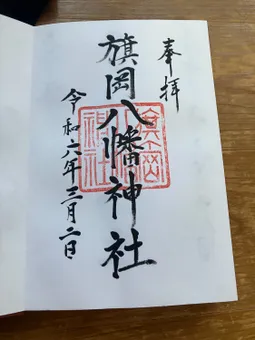 奉拝
旗岡八幡神社
令和六年三月二日